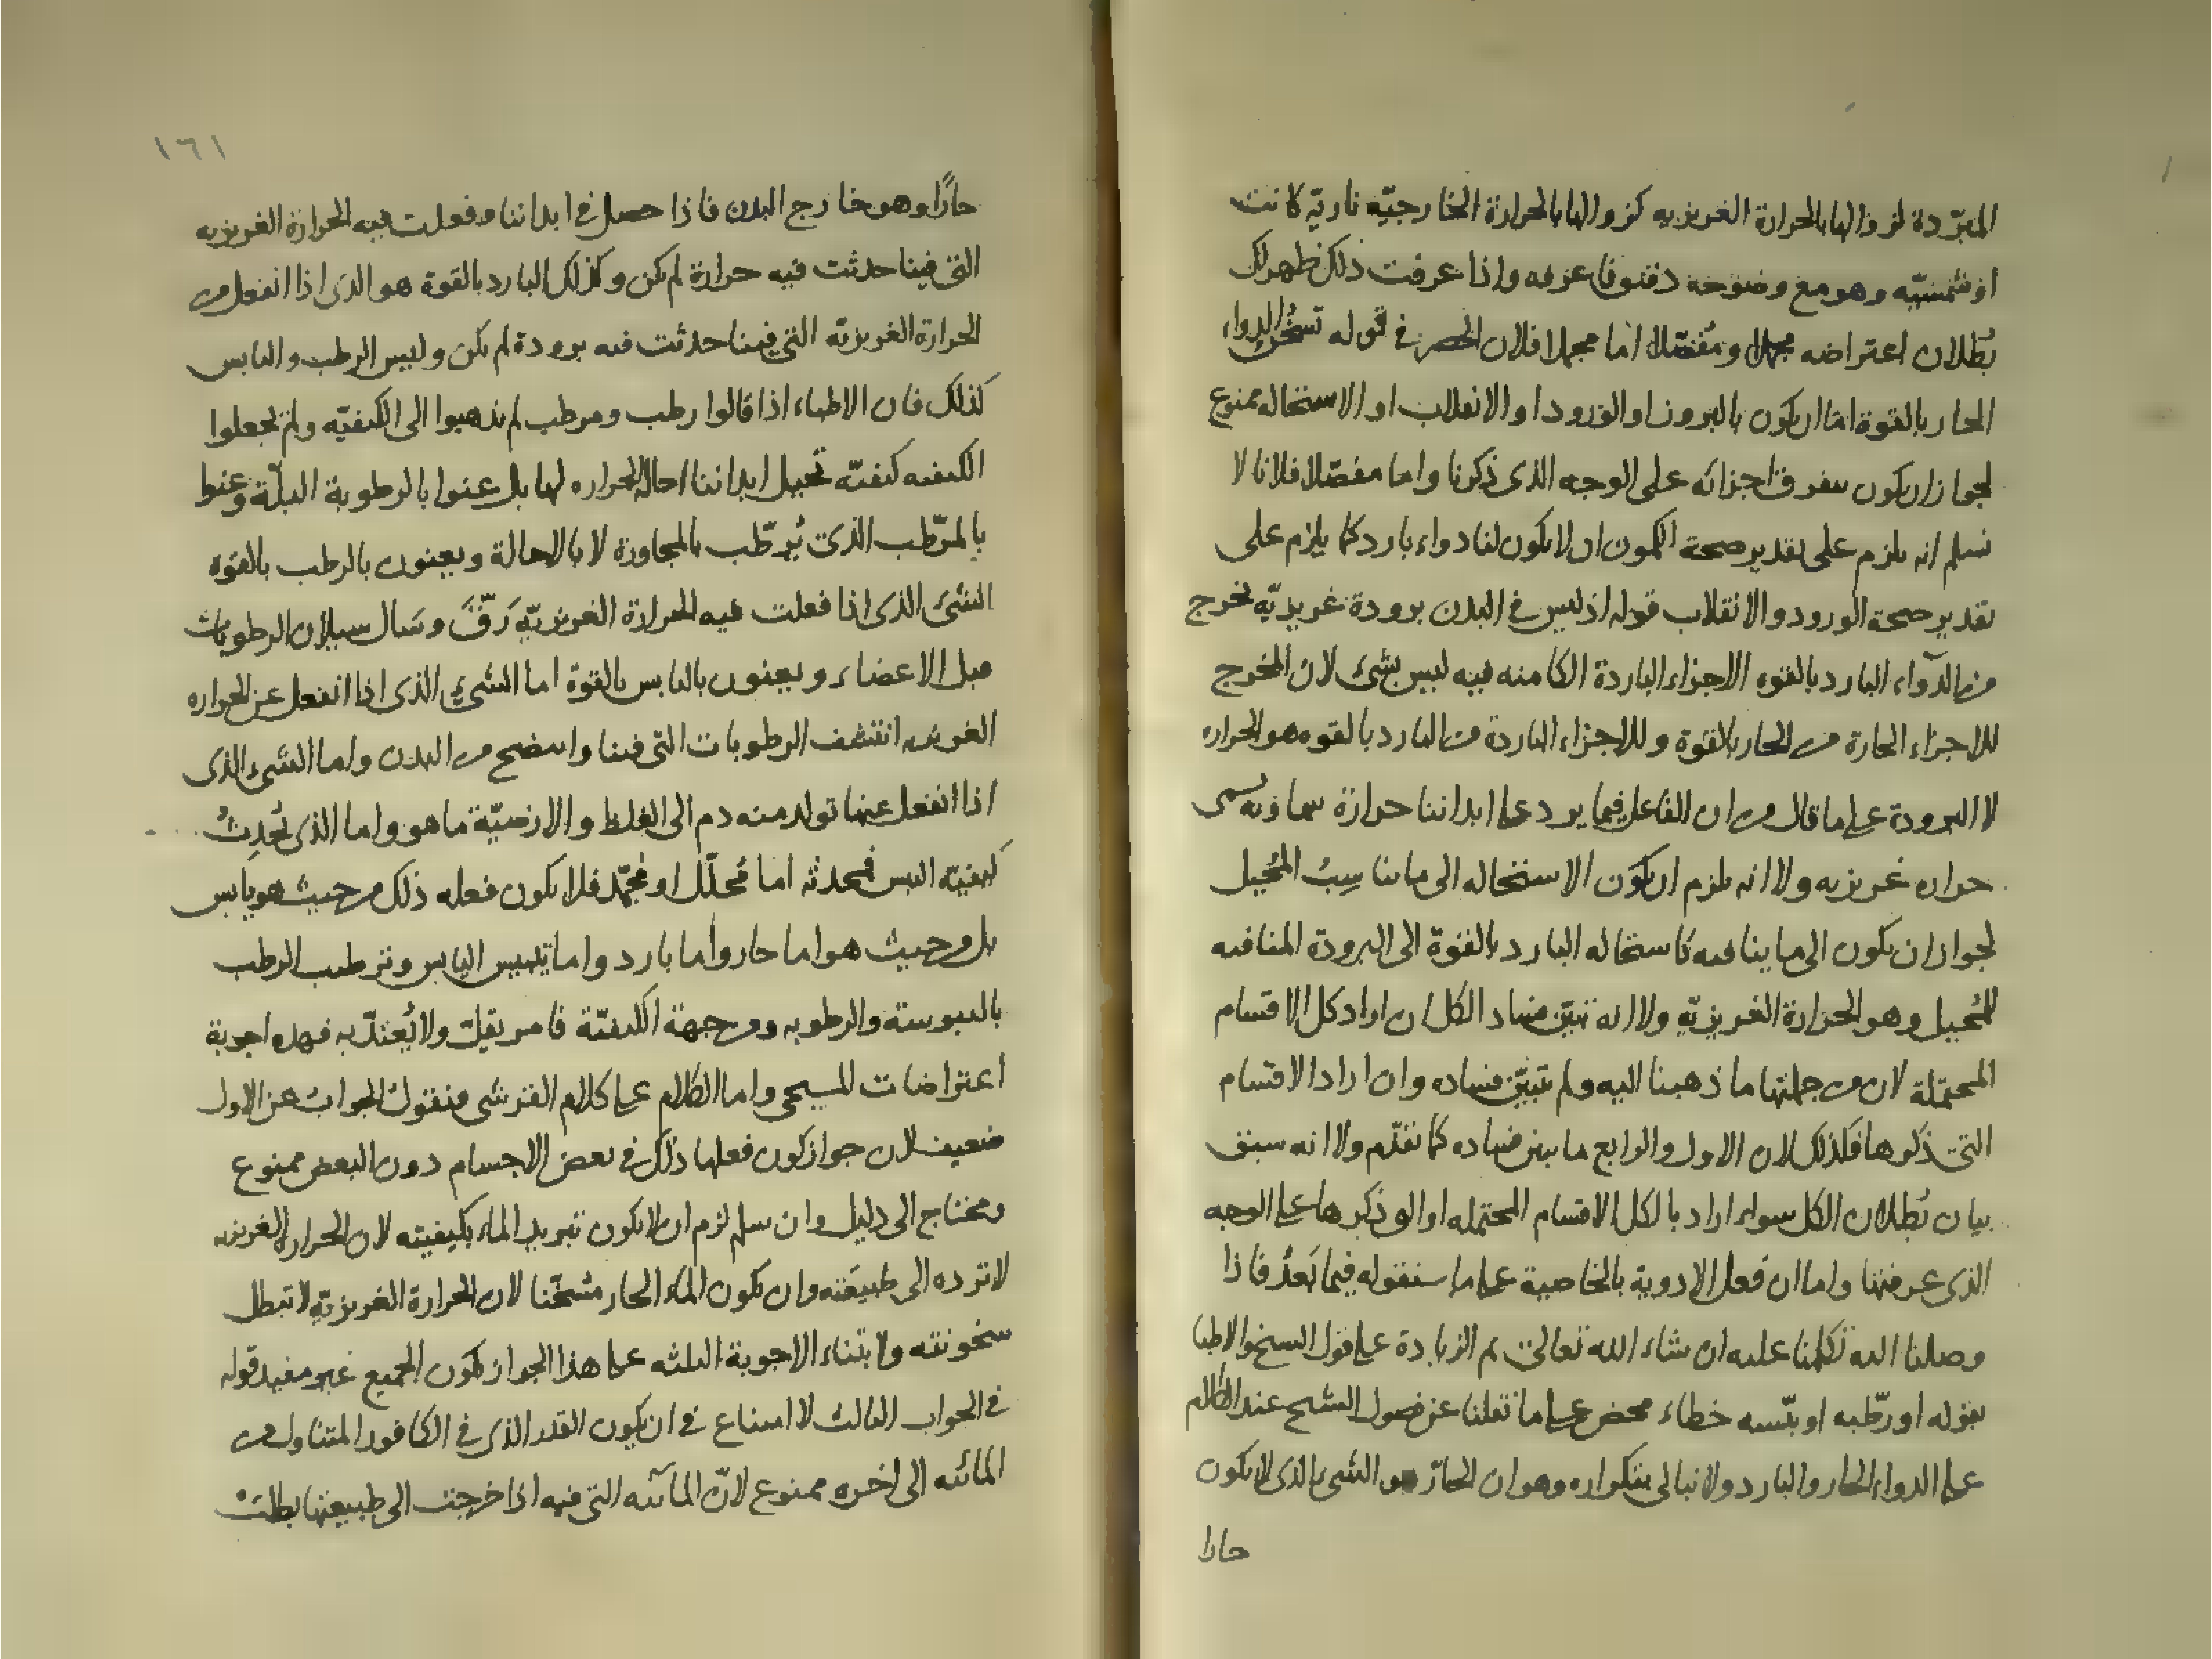 المبرّدة لزوالها بالحرارة الغريزيه كزوالها بالحرارة الخارجيّه ناريّه كانت
او شمسيّه وهو مع وضوحه دقيق فاعرفه واذا عرفت ذلك ظهر لك
بُطلان اعتراضه مجملا ومُفصّلا اما مجملا فلان الحصر في قوله تسخُّن الدواء
الحار بالقوة اما ان يكون بالبروز او الورود او الانقلاب او الاستحاله ممنوع
لجواز ان يكون بتفرق اجزائه على الوجه الذى ذكرنا واما مفصّلا فلانا لا
نسلم انه يلزم على تقدير صحة الكمون ان لا يكون لنا دواء بارد كما يلزم على
تقدير صحة الورود والانقلاب قوله اذ ليس في البدن برودة غريزيّه تخرج
من الدّواء البارد بالقوه الاجزاء الباردة الكامنه فيه ليس بشئ لان المخرج
للاجزاء الحارة من الحار بالقوة وللاجزاء الباردة من البارد بالقوه هو الحراره
لا البرودة على ما قال من ان الفاعل فيما يرد على ابداننا حرارة سماويه تسمى
حراره غريزيه ولا انه يلزم ان يكون الاستحاله الى ما يناسِبُ المُحيل
لجواز ان يكون الى ما ينافيه كاستحاله البارد بالقوة الى البرودة المنافيه
للمُحيل وهو الحرارة الغريزيّه ولا انه تبيّن فساد الكل ان اراد كل الاقسام
المحتملة لان من جملتها ما ذهبنا اليه ولم تتبيّن فساده وان اراد الاقسام
التى ذكرها فكذلك لان الاول والرابع ما تبين فساده كما تقدّم ولا انه سبق
بيان بُطلان الكل سواء اراد بالكل الاقسام المحتمله او التى ذكرها على الوجه
الذى عرفتها واما ان فعل الادوية بالخاصية على ما سنقوله فيما بَعدُ فاذا
وصلنا اليه تكلمنا عليه ان شاء الله تعالى ثم الزيادة على قول الشيخ والاطبا
بقوله او رطّبه او يبّسه خطاء محض على ما نقلنا عن فصول الشيخ عند الكلام
على الدواء الحار والبارد ولا نبالى بتكراره وهو ان الحارّ هو الشئ الذى لا يكون
حارا
١٦١
حارًّا وهو خارج البدن فاذا حصل في ابداننا وفعلت فيه الحرارة الغريزيه
التى فينا حدثت فيه حرارة لم تكن وكذلك البارد بالقوة هو الذى اذا انفعل من
الحرارة الغريزيّه التى فينا حدثت فيه برودة لم تكن وليس الرطب واليابس
كذلك فان الاطباء اذا قالوا رطب ومرطب لم يذهبوا الى الكيفيّه ولم يجعلوا
الكيفيه كيفيّه تحيل ابداننا احالة الحراره لها بل عنوا بالرطوبة البلّة وعنوا
بالمرّطب الذى يُرطّب بالمجاورة لا بالاحالة ويعنون بالرطب بالقوه
الشئ الذى اذا فعلت فيه الحرارة الغريزيّه رَقَّ وسَال سيلان الرطوبات
قبل الاعضاء ويعنون باليابس بالقوة اما الشئ الذى اذا انفعل عن الحراره
الغريزيه انتشف الرطوبات التى فينا من البدن واما الشئ الذى
اذا انفعل عنها تولد منه دم الى الغلظ والارضيّة ما هو واما الذى يُحدِثُ
كيفيّه اليبس فيُحدثه اما مُحلّل او مُجمّد فلا يكون فعله ذلك من حيث هو يابس
بل من حيث هو اما حار واما بارد واما تيبيس اليابس وترطيب الرطب
باليبوسة والرطوبه ومن جهة الكيفيّة فامر يقلّ ولا يُعتدّ به فهذه اجوبة
اعتراضات المسيحى واما الكلام على كلام القرشى فنقول الجواب عن الاول
ضعيف لان جواز كون فعلها ذلك في بعض الاجسام دون البعض ممنوع
ومحتاج الى دليل وان سلم لزم ان لا يكون تبريد الماء بكيفيته لان الحرارة الغريزيه
لا ترده الى طبيعته وان يكون الماء الحار مسُخّنا لان الحرارة الغريزيّه لا تبطل
سخونته ولابتناء الاجوبة الثلثه على هذا الجواز يكون الجميع غير مفيد قوله
في الجواب الثالث لا امتناع في ان يكون القدر الذى في الكافور المتناول من
المائيه الى اخره ممنوع لانّ المائيّه التى فيه اذا خرجت الى طبيعتها بطلت